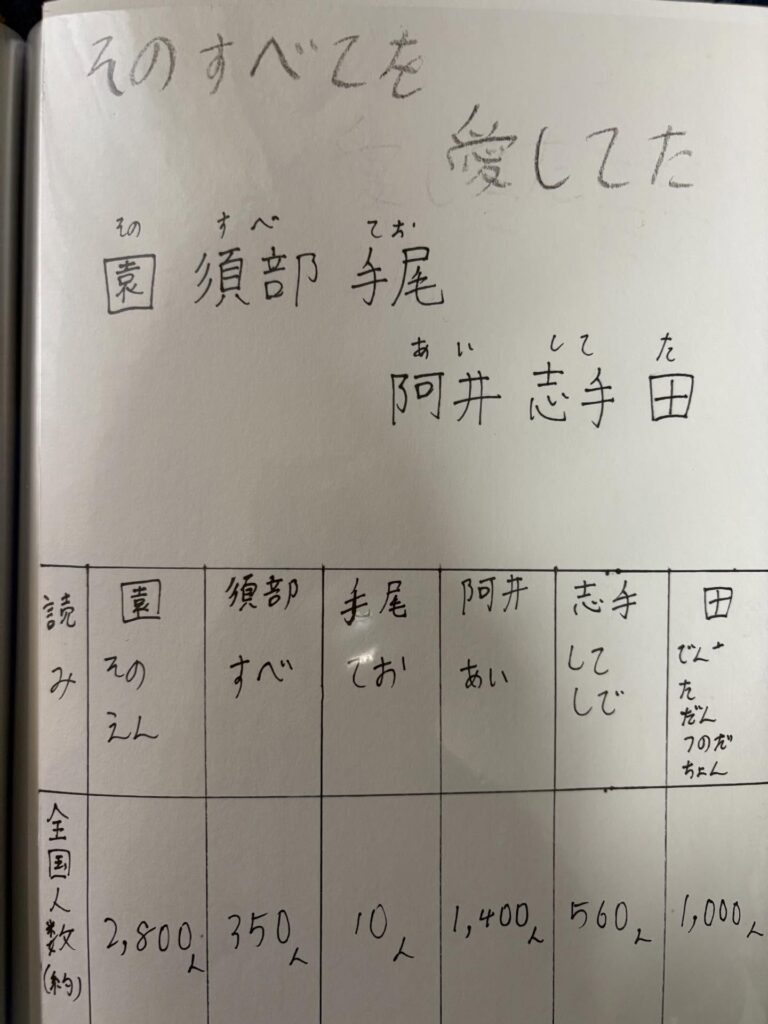 そのすべてを
愛してた
その すべ てお
園 須部 手尾
あい して た
阿井 志手 田
読み 園 須部 手尾 阿井 志手 田
その すべ てお あい して でん
えん しで た
だん
つのだ
ちょん
全国人数(約) 2,800人 350人 10人 1,400人 560人 1,000人